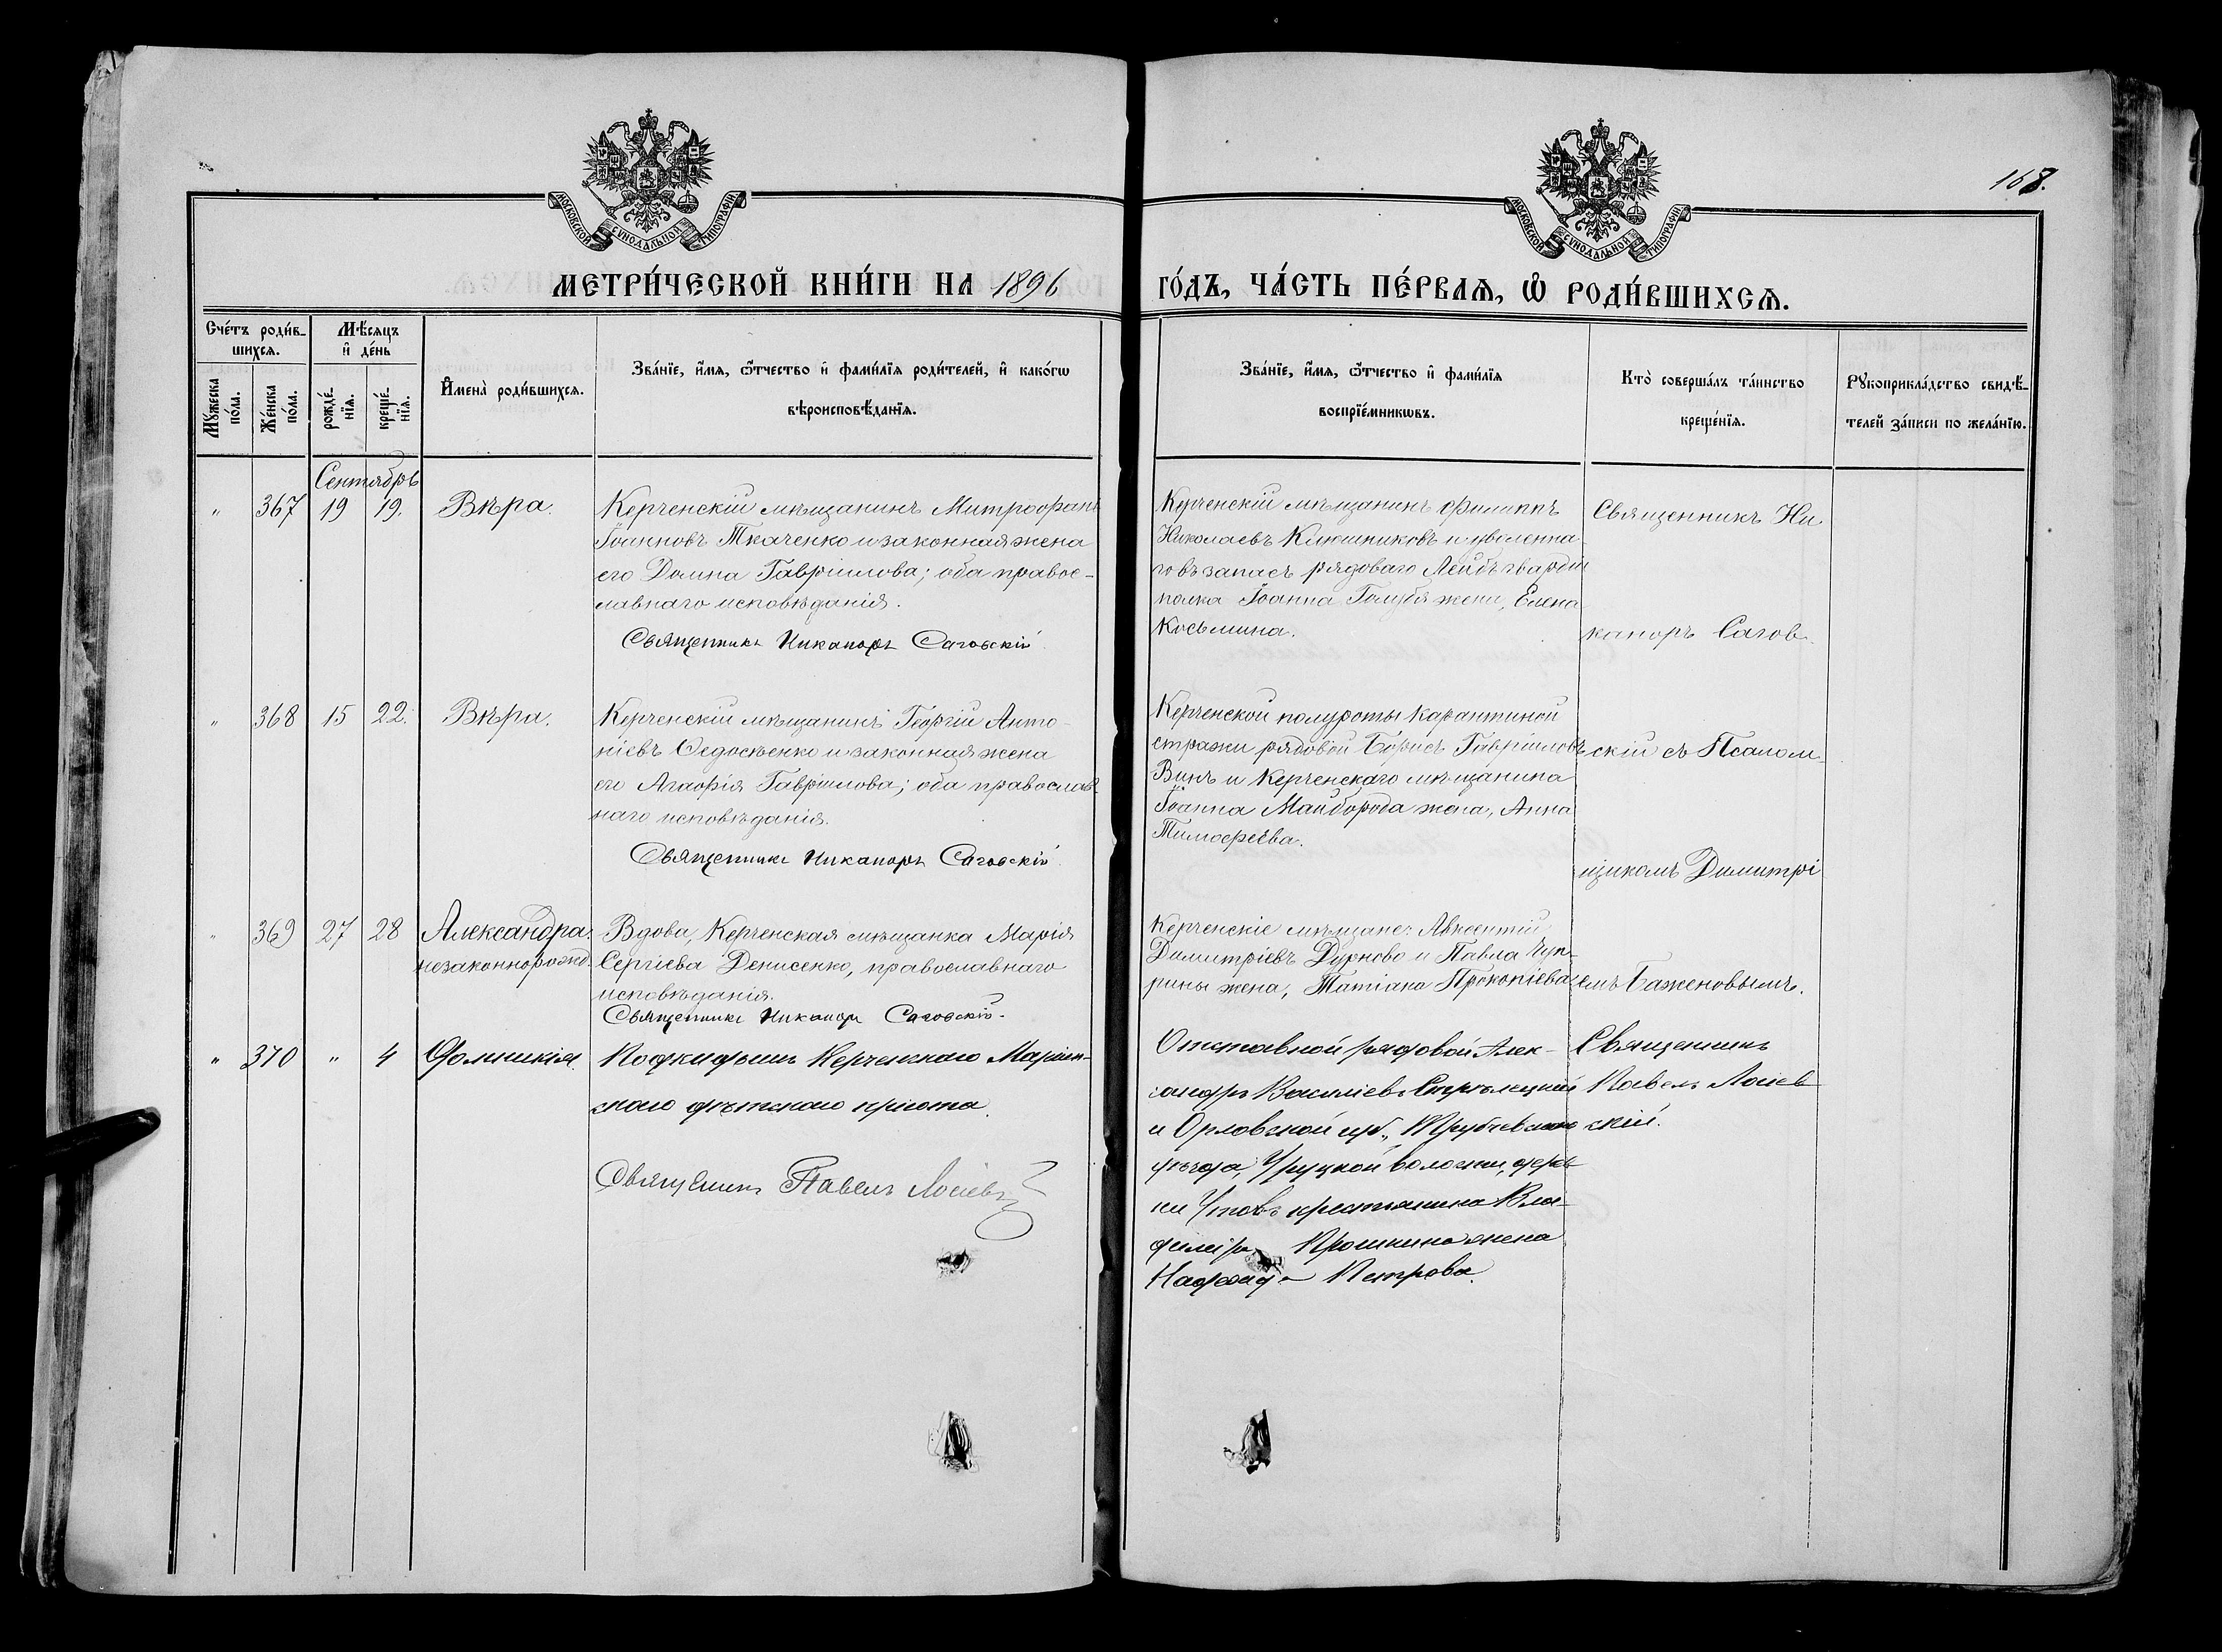 168.
МОСКОВСКОЙ СѴНОДАЛЬНОЙ ТИПОГРАФІИ
МОСКОВСКОЙ СѴНОДАЛЬНОЙ ТИПОГРАФІИ
МЕТРИ́ЧЕСКОЙ КНИ́ГИ НА 1896
ГО́ДЪ, ЧА́СТЬ ПЕ́РВАѦ, Ѡ РОДИ́ВШИХСѦ.
Сче́тъ роди́в-
шихсѧ.
Мѣ́сѧцъ
и҆ де́нь
Мꙋ́жеска
по́ла.
Же́нска
по́ла.
рожде́-
нїѧ.
креще́-
нїѧ.
И҆мена̀ роди́вшихсѧ.
Зва́нїе, и҆́мѧ, ѻ҆́тчество и҆ фами́лїѧ роди́телей, и҆ како́гѡ
вѣроисповѣ́данїѧ.
Зва́нїе, и҆́мѧ, ѻ҆́тчество и҆ фами́лїѧ
воспрїе́мникѡвъ.
Кто̀ соверша́лъ та́инство
креще́нїѧ.
Рꙋкоприкла́дство свидѣ́-
телей за́писи по жела́нїю.
Сентябрь
" 367 19 19. Вѣра.
Керченскій мѣщанинъ Митрофанъ
Іоанновъ Ткаченко и законная жена
его Домна Гавріилова; оба правос-
лавнаго исповѣданія.
Священникъ Никаноръ Саговскій
Керченскій мѣщанинъ Филиппъ
Николаевъ Ключниковъ и уволенна
го въ запасъ рядоваго Лейбъ гвардіи
полка Іоанна Голубя жена, Елена
Косьмина.
Священникъ Ни
каноръ Сагов-
" 368 15 22. Вѣра.
Керченскій мѣщанинъ Георгій Анто-
ніевъ Ѳедосѣенко и законная жена
его Агафія Гавріилова; оба православ-
наго исповѣданія.
Священникъ Никаноръ Саговскій
Керченской полуроты карантиной
стражи рядовой Борисъ Гавріиловъ
Винъ и Керченскаго мѣщанина
Іоанна Майборода жена, Анна
Тимофеева.
скій съ Псалом-
щикомъ Димитрі
" 369 27 28 Александра.
незаконнорожд.
Вдова, Керченская мѣщанка Марія
Сергіева Денисенко, православнаго
исповѣданія.
Священникъ Никаноръ Саговскій.
Керченскіе мѣщане: Авксентій
Димитріевъ Дурнево и Павла Чуп-
рины жена, Татіана Прокопіева
емъ Баженовымъ.
" 370 " 4 Домникія.
Подкидышъ Керченскаго Маріин-
скаго дѣтскаго пріюта.
Священникъ Павелъ Лосіевск
Отставной рядовой Алек-
сандръ Василіевъ Стрѣлецкій
и Орловской губ., Трубчевскаго
уѣзда, Уруцкой волости, дерев
ни Утовъ крестьянина Вла-
диміра Прошкина жена
Надежда Петрова.
Священникъ
Павелъ Лосіев
скій.